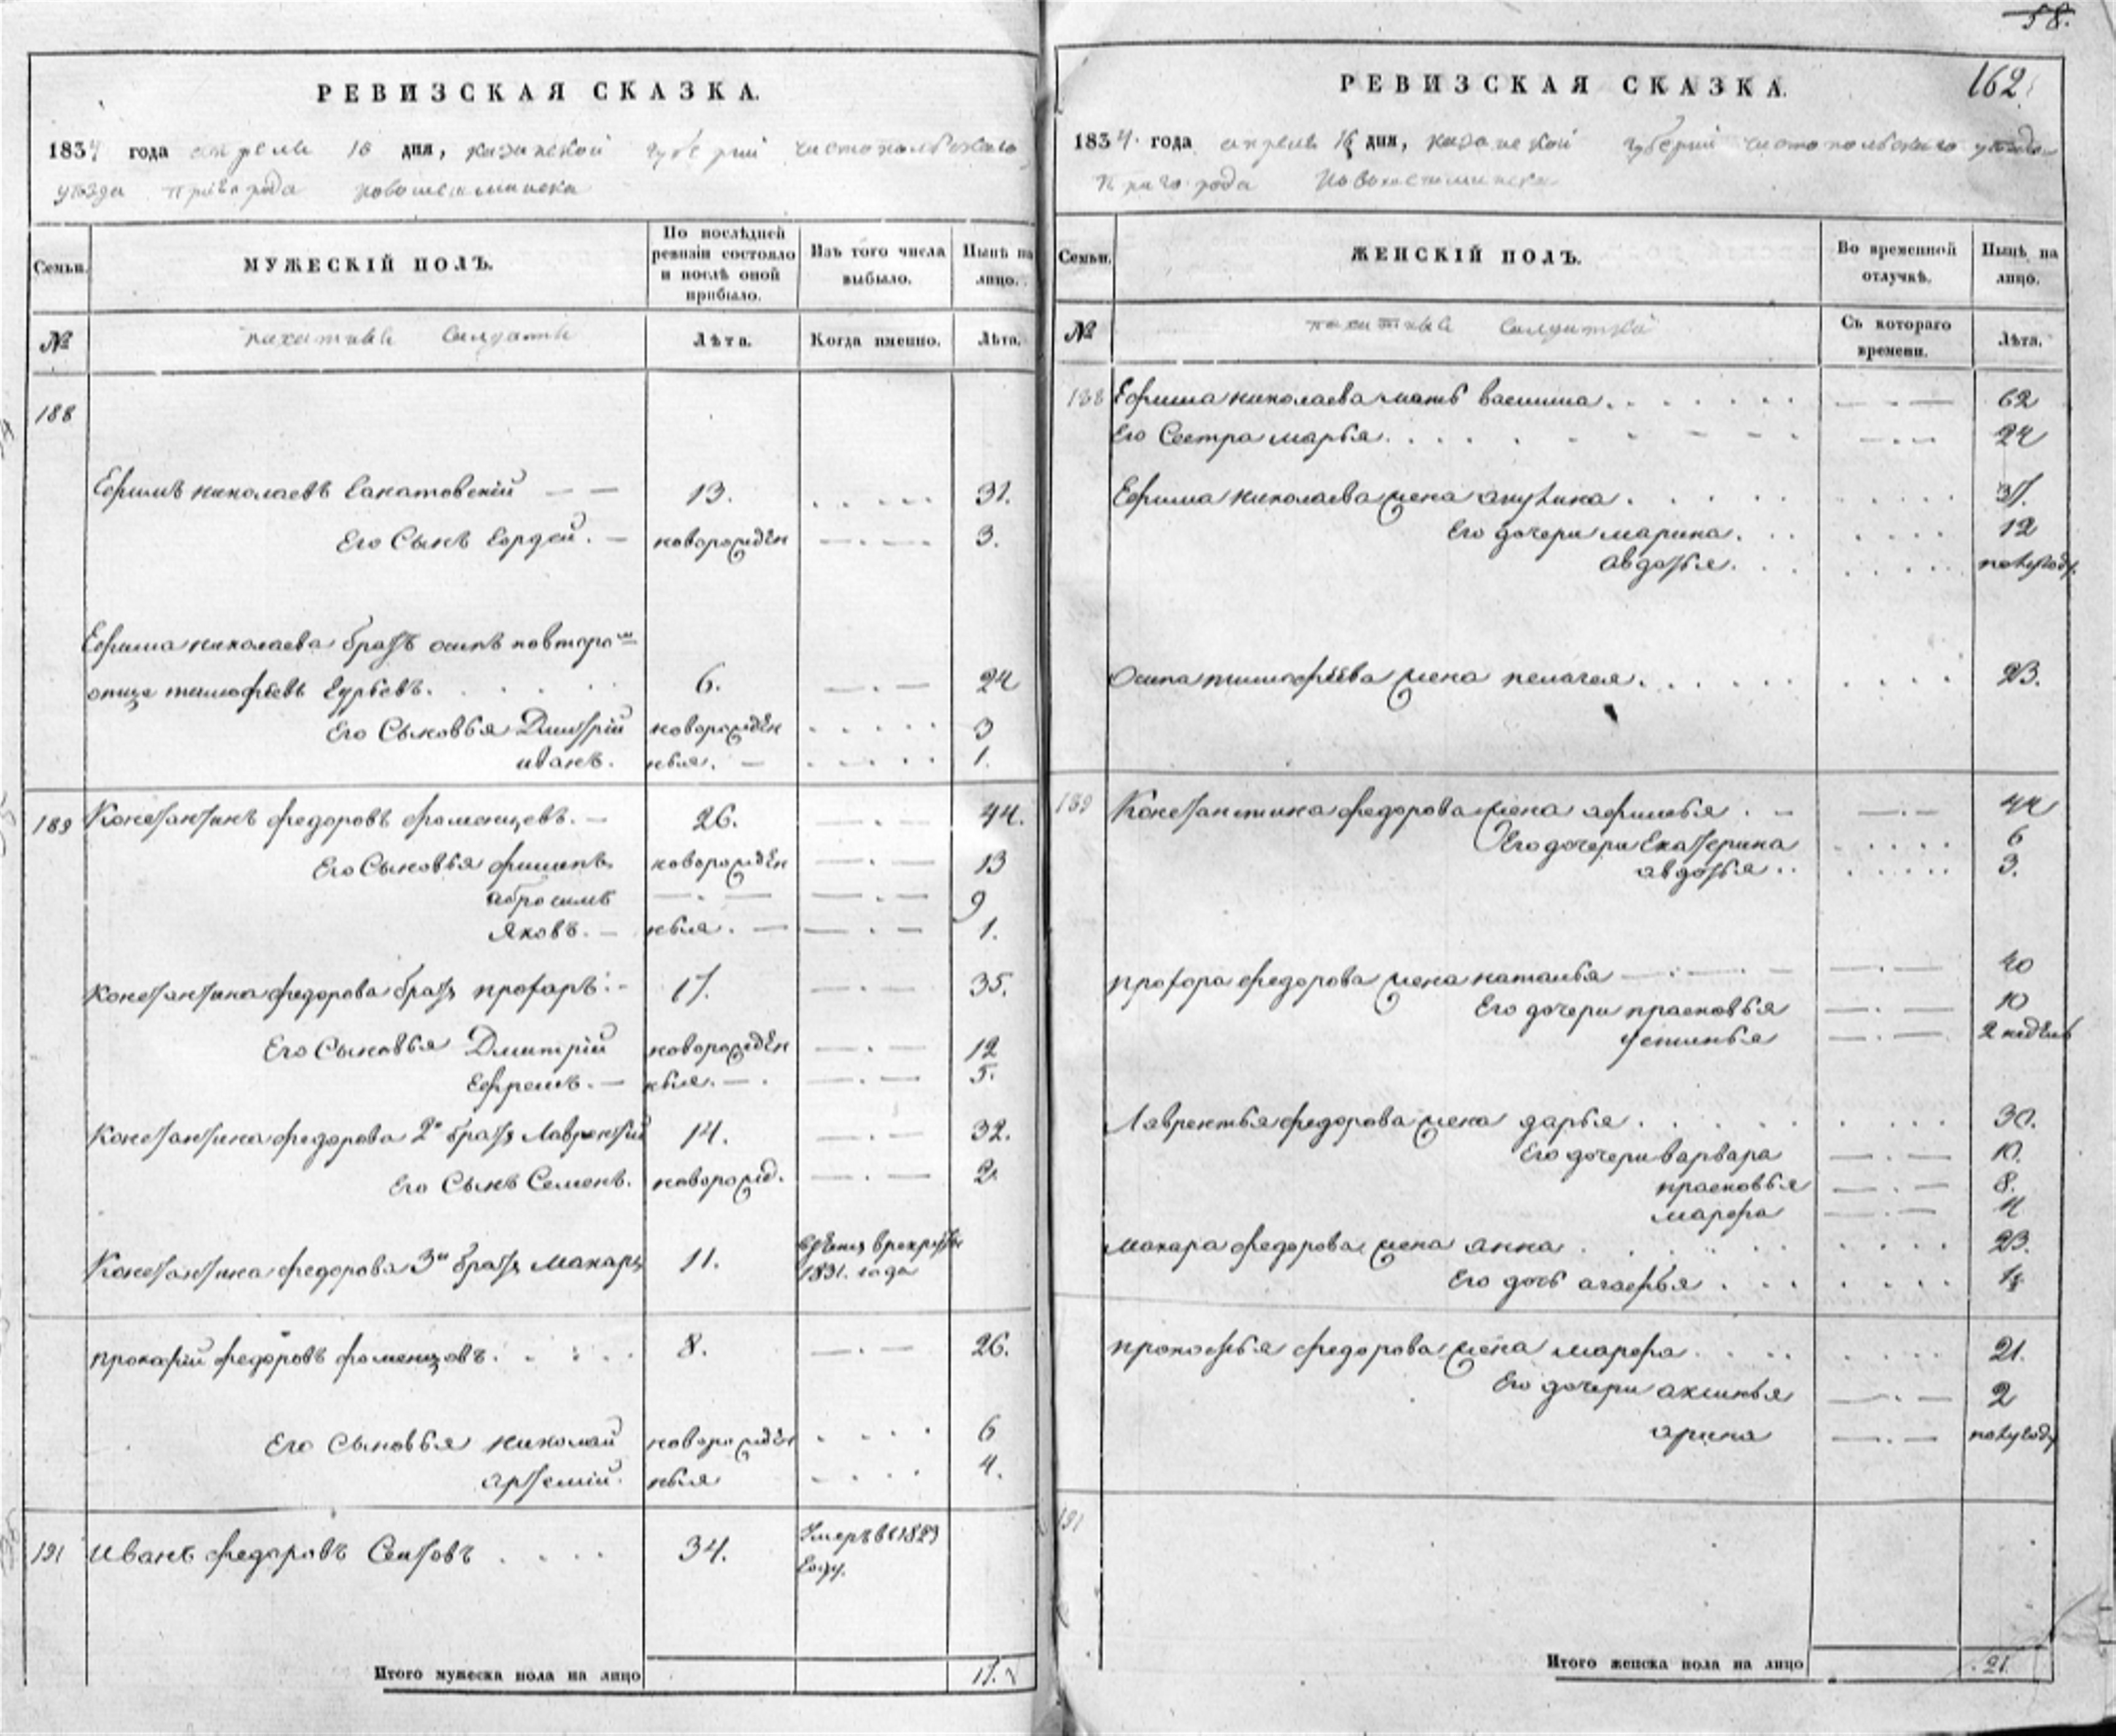 РЕВИЗСКАЯ СКАЗКА.
1834 года апреля 16 дня, казанской губернии чистопольскаго
уезда пригорода новошешминска
Семьи.
МУЖЕСКІЙ ПОЛЪ.
По послѣдней ревизіи состояло и послѣ оной прибыло.
Изъ того числа выбыло.
Нынѣ на лицо.
№
пахатные салдаты
Лѣта.
Когда именно.
Лѣта.
188
Ефимъ николаевъ 13. 31.
Его Сынъ новорожден 3.
Ефима николаева братъ осипъ повторо
отцу тимофѣевъ 6. 24
Его Сыновья Дмитрій новорожден 3
иванъ. ныя. 1.
189 Константинъ федоровъ фоменцовъ. 26. 44.
Его Сыновья филипъ новорожден 13
абросимъ 9
Яковъ. ныя. 1.
Константина федорова братъ профаръ 17. 35.
Его Сыновья Дмитрій новорожден 12
Ефремъ. ныя. 5.
Константина федорова 2й братъ Лаврентій 14. 32.
Его Сынъ Семенъ. новорожд. 2
Константина федорова 3й братъ Макаръ 11. 1831. года
прокофій федоровъ фоменцовъ. 8. 26.
Его Сыновья николай новорожден 6
артемій. ныя 4.
191 Иванъ федоровъ Сеитовъ 34. Умеръ в 1829
Году.
Итого мужеска пола на лицо 17.
58.
162
РЕВИЗСКАЯ СКАЗКА.
1834 года апреля 16 дня, казанской губерніи чистопольскаго уезда
пригорода новошешминска
Семьи.
ЖЕНСКІЙ ПОЛЪ.
Во временной отлучкѣ.
Нынѣ на лицо.
№
пахатные салдатки
Съ котораго времени.
Лѣта.
188 Ефима николаева мать василиса. 62
Его Сестра марья. 24
Ефима николаева жена акулина. 37.
Его дочери марина. 12
авдотья. полугоду.
Осипа тимофѣева жена пелагея. 23.
189 Константина федорова жена афимья 44
Его дочери Екатерина 6
авдотья 3.
профора федорова жена наталья 40
Его дочери прасковья 10
устинья 2 недель
Лаврентья федорова жена дарья. 30.
Его дочери варвара 10.
прасковья 8.
марфа 4
макара федорова жена анна 23.
Его дочь агафья
прокофья федорова жена марфа 21.
Его дочери аксинья 2
арина полугоду
191
Итого женска пола на лицо 21